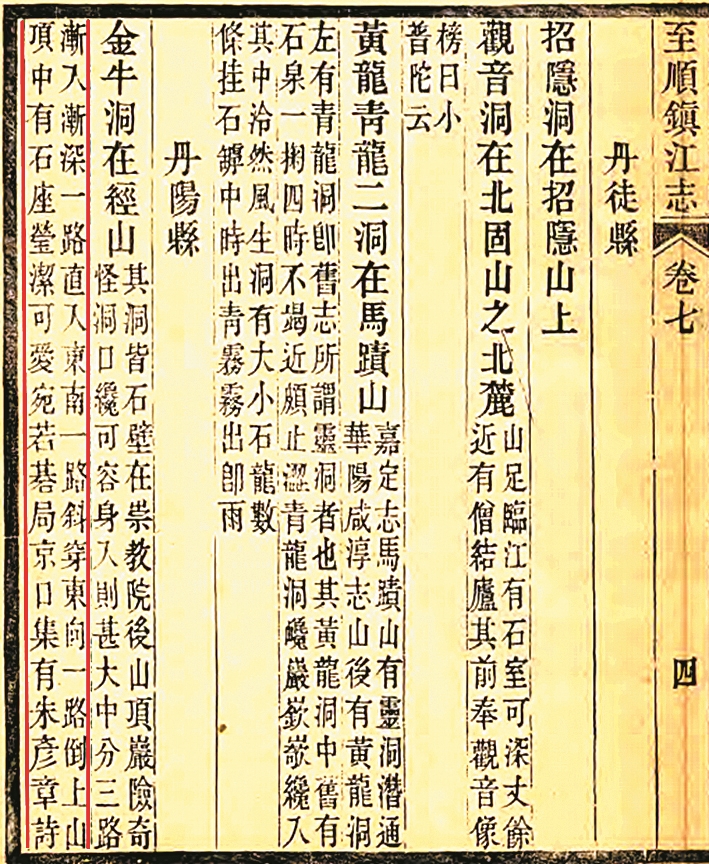 至順鎮江志 卷七 四
丹徒縣
招隱洞在招隱山上
觀音洞在北固山之北麓
山足臨江有石室可深丈餘
近有僧結廬其前奉觀音像
榜曰小
普陀云
黃龍青龍二洞在馬蹟山
嘉定志馬蹟山有靈洞潛通
華陽咸淳志山後有黃龍洞
左有青龍洞卽舊志所謂靈洞者也其黃龍洞中舊有
石泉一掬四時不竭近頗止澀青龍洞巉巖嶔纔入
其中泠然風生洞有大小石龍數
條挂石罅中時出青霧霧出卽雨
丹陽縣
金牛洞在經山
其洞皆石壁在崇教院後山頂巖險奇
怪洞口纔可容身入則甚大中分三路
漸入漸深一路直入東南一路斜穿東向一路倒上山
項中有石座瑩潔可愛宛若碁局京口集有朱彥章詩